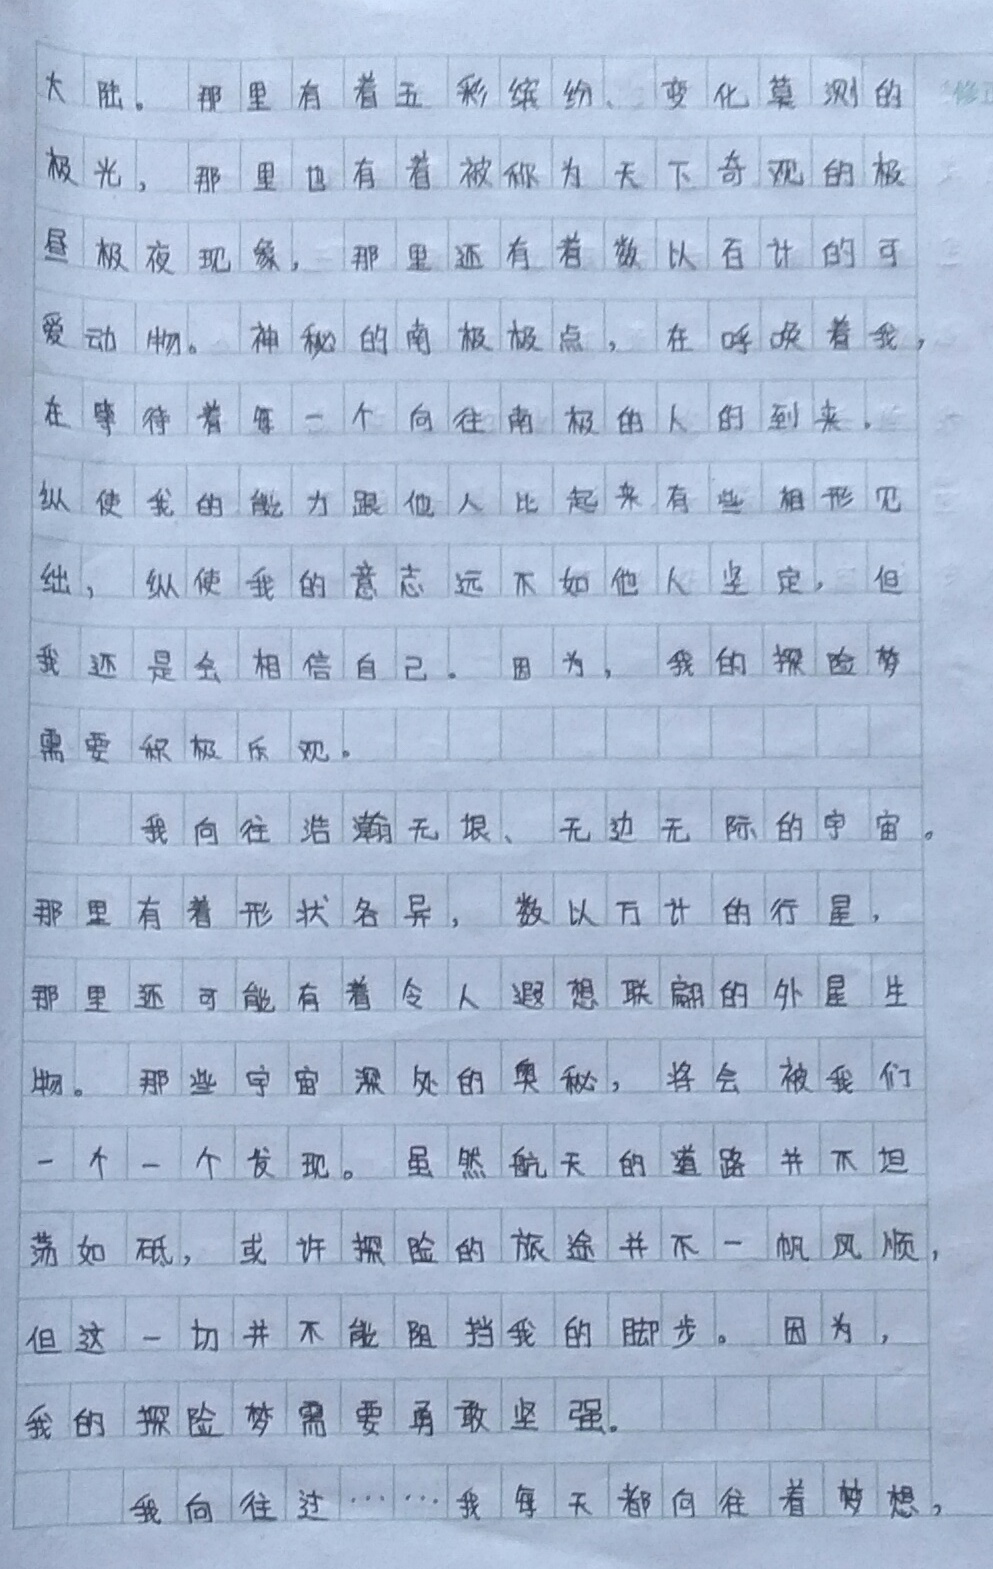 大陆。那里有着五彩缤纷、变化莫测的
极光，那里也有着被称为天下奇观的极
昼极夜现象，那里还有着数以百计的可
爱动物。神秘的南极极点，在呼唤着我，
在等待着每一个向往南极的人的到来。
纵使我的能力跟他人比起来有些相形见
绌，纵使我的意志远不如他人坚定，但
我还是会相信自己。因为，我的探险梦
需要积极乐观。
我向往浩瀚无垠、无边无际的宇宙。
那里有着形状各异，数以万计的行星，
那里还可能有着令人遐想联翩的外星生
物。那些宇宙深处的奥秘，将会被我们
一个一个发现。虽然航天的道路并不坦
荡如砥，或许探险的旅途并不一帆风顺，
但这一切并不能阻挡我的脚步。因为，
我的探险梦需要勇敢坚强。
我向往过……我每天都向往着梦想，